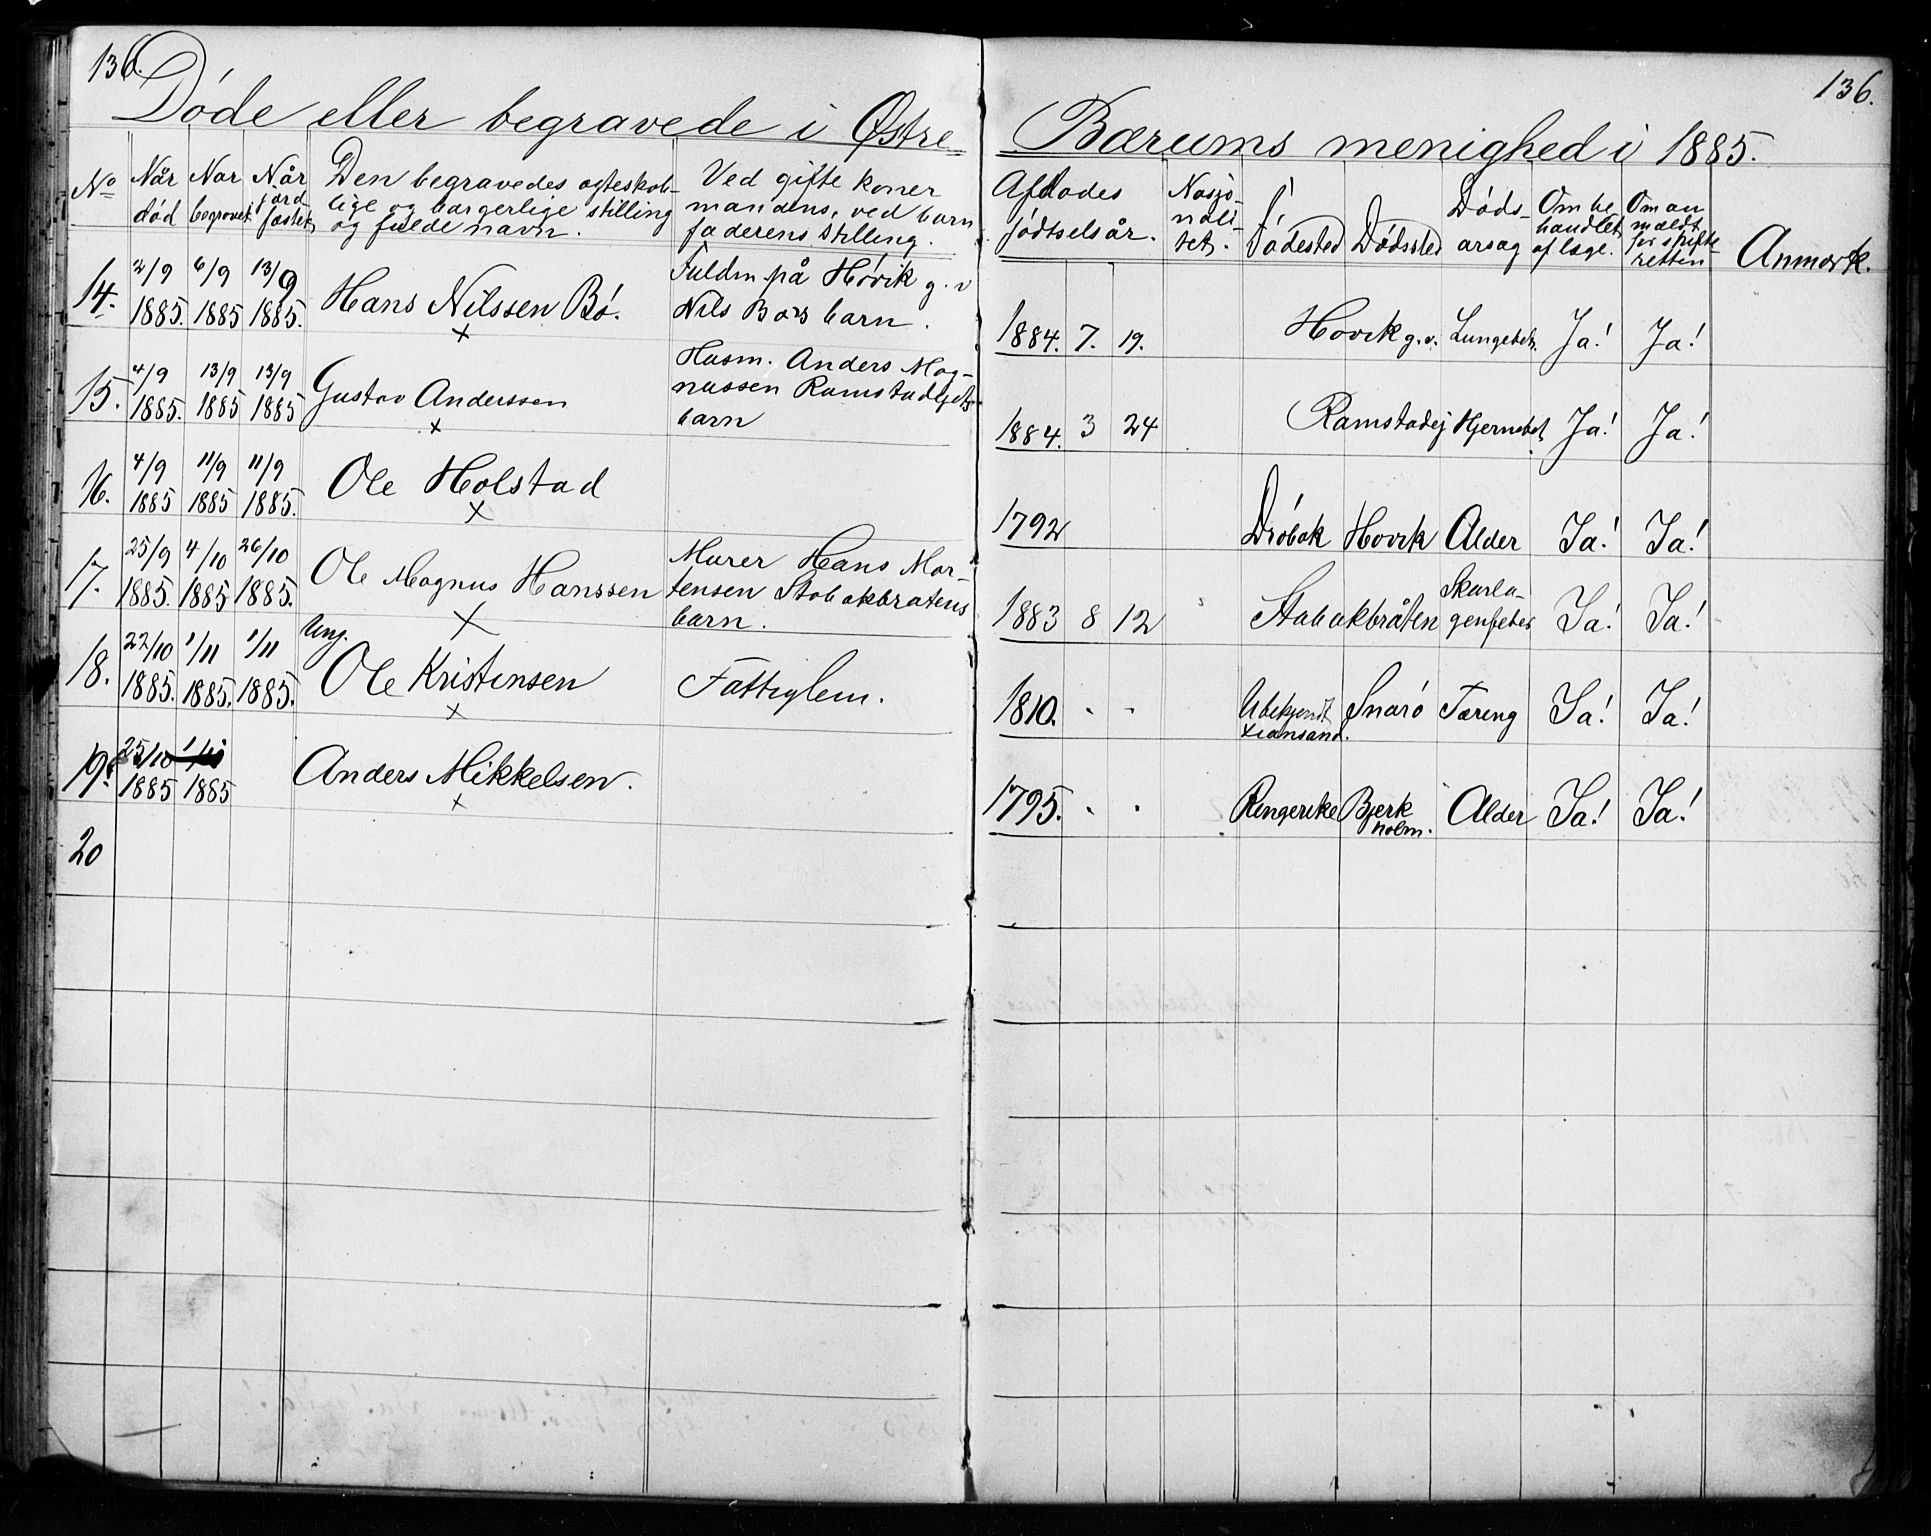 136.
136.
Døde eller begravede i Østre Bærums menighed i 1885.
No
Når død
Når begravet
Når jord fæstet
Den begravedes ægteskab-
lige og borgerlige stilling
og fulde navn.
Ved gifte koner
mandens, ved barn
faderens stilling.
Afdødes
fødtselsår.
Nasjo-
nali-
tet.
Fødested
Dødssted
Døds-
årsag
Om be
handlet
af læge.
Om an
mældt
for skifte
retten
Anmærk.
14. 2/9 1885. 6/9 1885 13/9 1885.
Hans Nilssen Bø.
x
Fuldm på Høvik g. v
Nils Bøs barn.
1884. 7. 19. Høvik g.v. Lungebet. Ja! Ja!
15. 4/9 1885. 13/9 1885 13/9 1885
Gustav Anderssen
x
Husm. Anders Mag-
nussen Ramstadejets
barn
1884. 3 24 Ramstadej Hjernebet. Ja! Ja!
16. 4/9 1885 11/9 1885 11/9 1885.
Ole Holstad
x
1792 Drøbak Høvik Alder Ja! Ja!
17. 25/9 1885. 4/10 1885 26/10 1885.
Ole Magnus Hanssen
x
Murer Hans Mor-
tensen Stabækbråtens
barn.
1883 8 12 Stabækbråten Skarla-
genfeber Ja! Ja!
18. 22/10 1885. 1/11 1885. 1/11 1885.
Ung.
Ole Kristensen
x
Fattiglem.
1810. - - Ubekjendt
Xiansand. Snarø Tæring Ja! Ja!
19. 25/10 1885 1885
Anders Mikkelsen.
x
1795. . . Ringerike Bjerk
holm. Alder Ja! Ja!
20